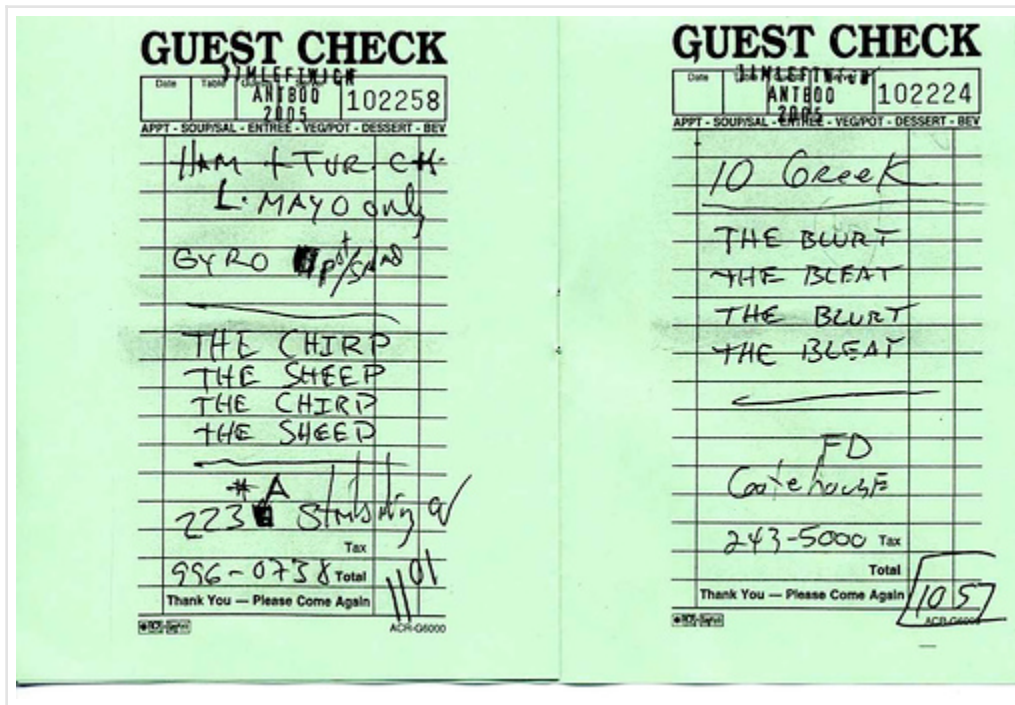 GUEST CHECK
Date Table
JIMLEFTWICH
ANTBOO
2005
102258
APPT - SOUP/SAL - ENTREE - VEG/POT - DESSERT - BEV
HAM + TUR. CH.
L. MAYO only
GYRO
THE CHIRP
THE SHEEP
THE CHIRP
THE SHEEP
# A
223
Tax
996-0738 Total
1101
Thank You — Please Come Again
ACR-G6000
GUEST CHECK
Date
JIMLEFTWICH
ANTBOO
2005
102224
APPT - SOUP/SAL - ENTREE - VEG/POT - DESSERT - BEV
10 Greek
THE BLURT
THE BLEAT
THE BLURT
THE BLEAT
FD
243-5000 Tax
Total
Thank You — Please Come Again
1057
ACR-G6000